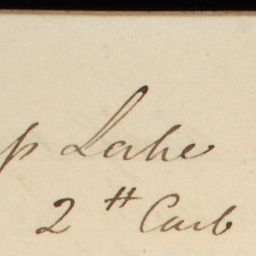 p Lake
2 # Carb